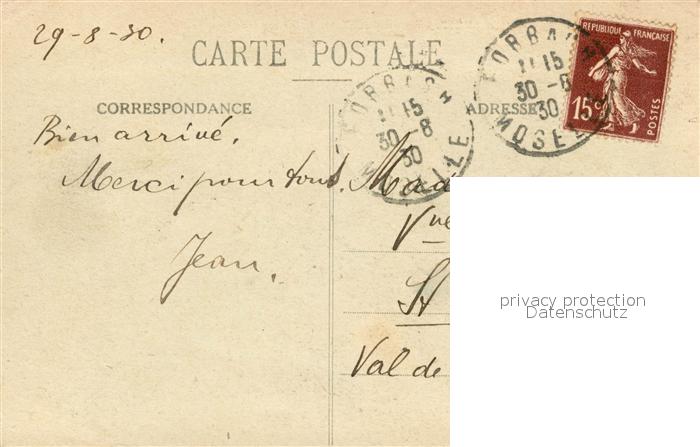 29-8-30.
CARTE POSTALE
REPUBLIQUE FRANÇAISE
15c
POSTES
FORBACH
11 15
30 -8
30
MOSELLE
FORBACH
11 15
30 -8
30
MOSELLE
CORRESPONDANCE
ADRESSE
Bien arrivé.
Merci pour tout.
Jean.
Mad
Vve
St
Val de
privacy protection
Datenschutz